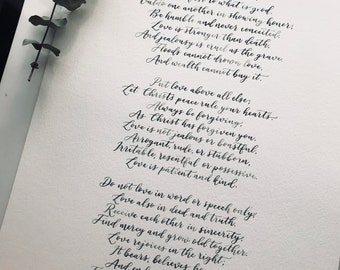 to what is good.
one another in showing honor;
Be humble and never conceited.
Love is stronger than death,
And jealousy is cruel as the grave.
Floods cannot drown love,
And wealth cannot buy it.
Put love above all else;
Let Christ's peace rule your hearts.
Always be forgiving;
As Christ has forgiven you.
Love is not jealous or boastful,
Arrogant, rude, or stubborn,
Irritable, resentful or possessive.
Love is patient and kind.
Do not love in word or speech only,
Love also in deed and truth.
Receive each other in sincerity,
Find mercy and grow old together.
Love rejoices in the right,
It bears, believes,
And